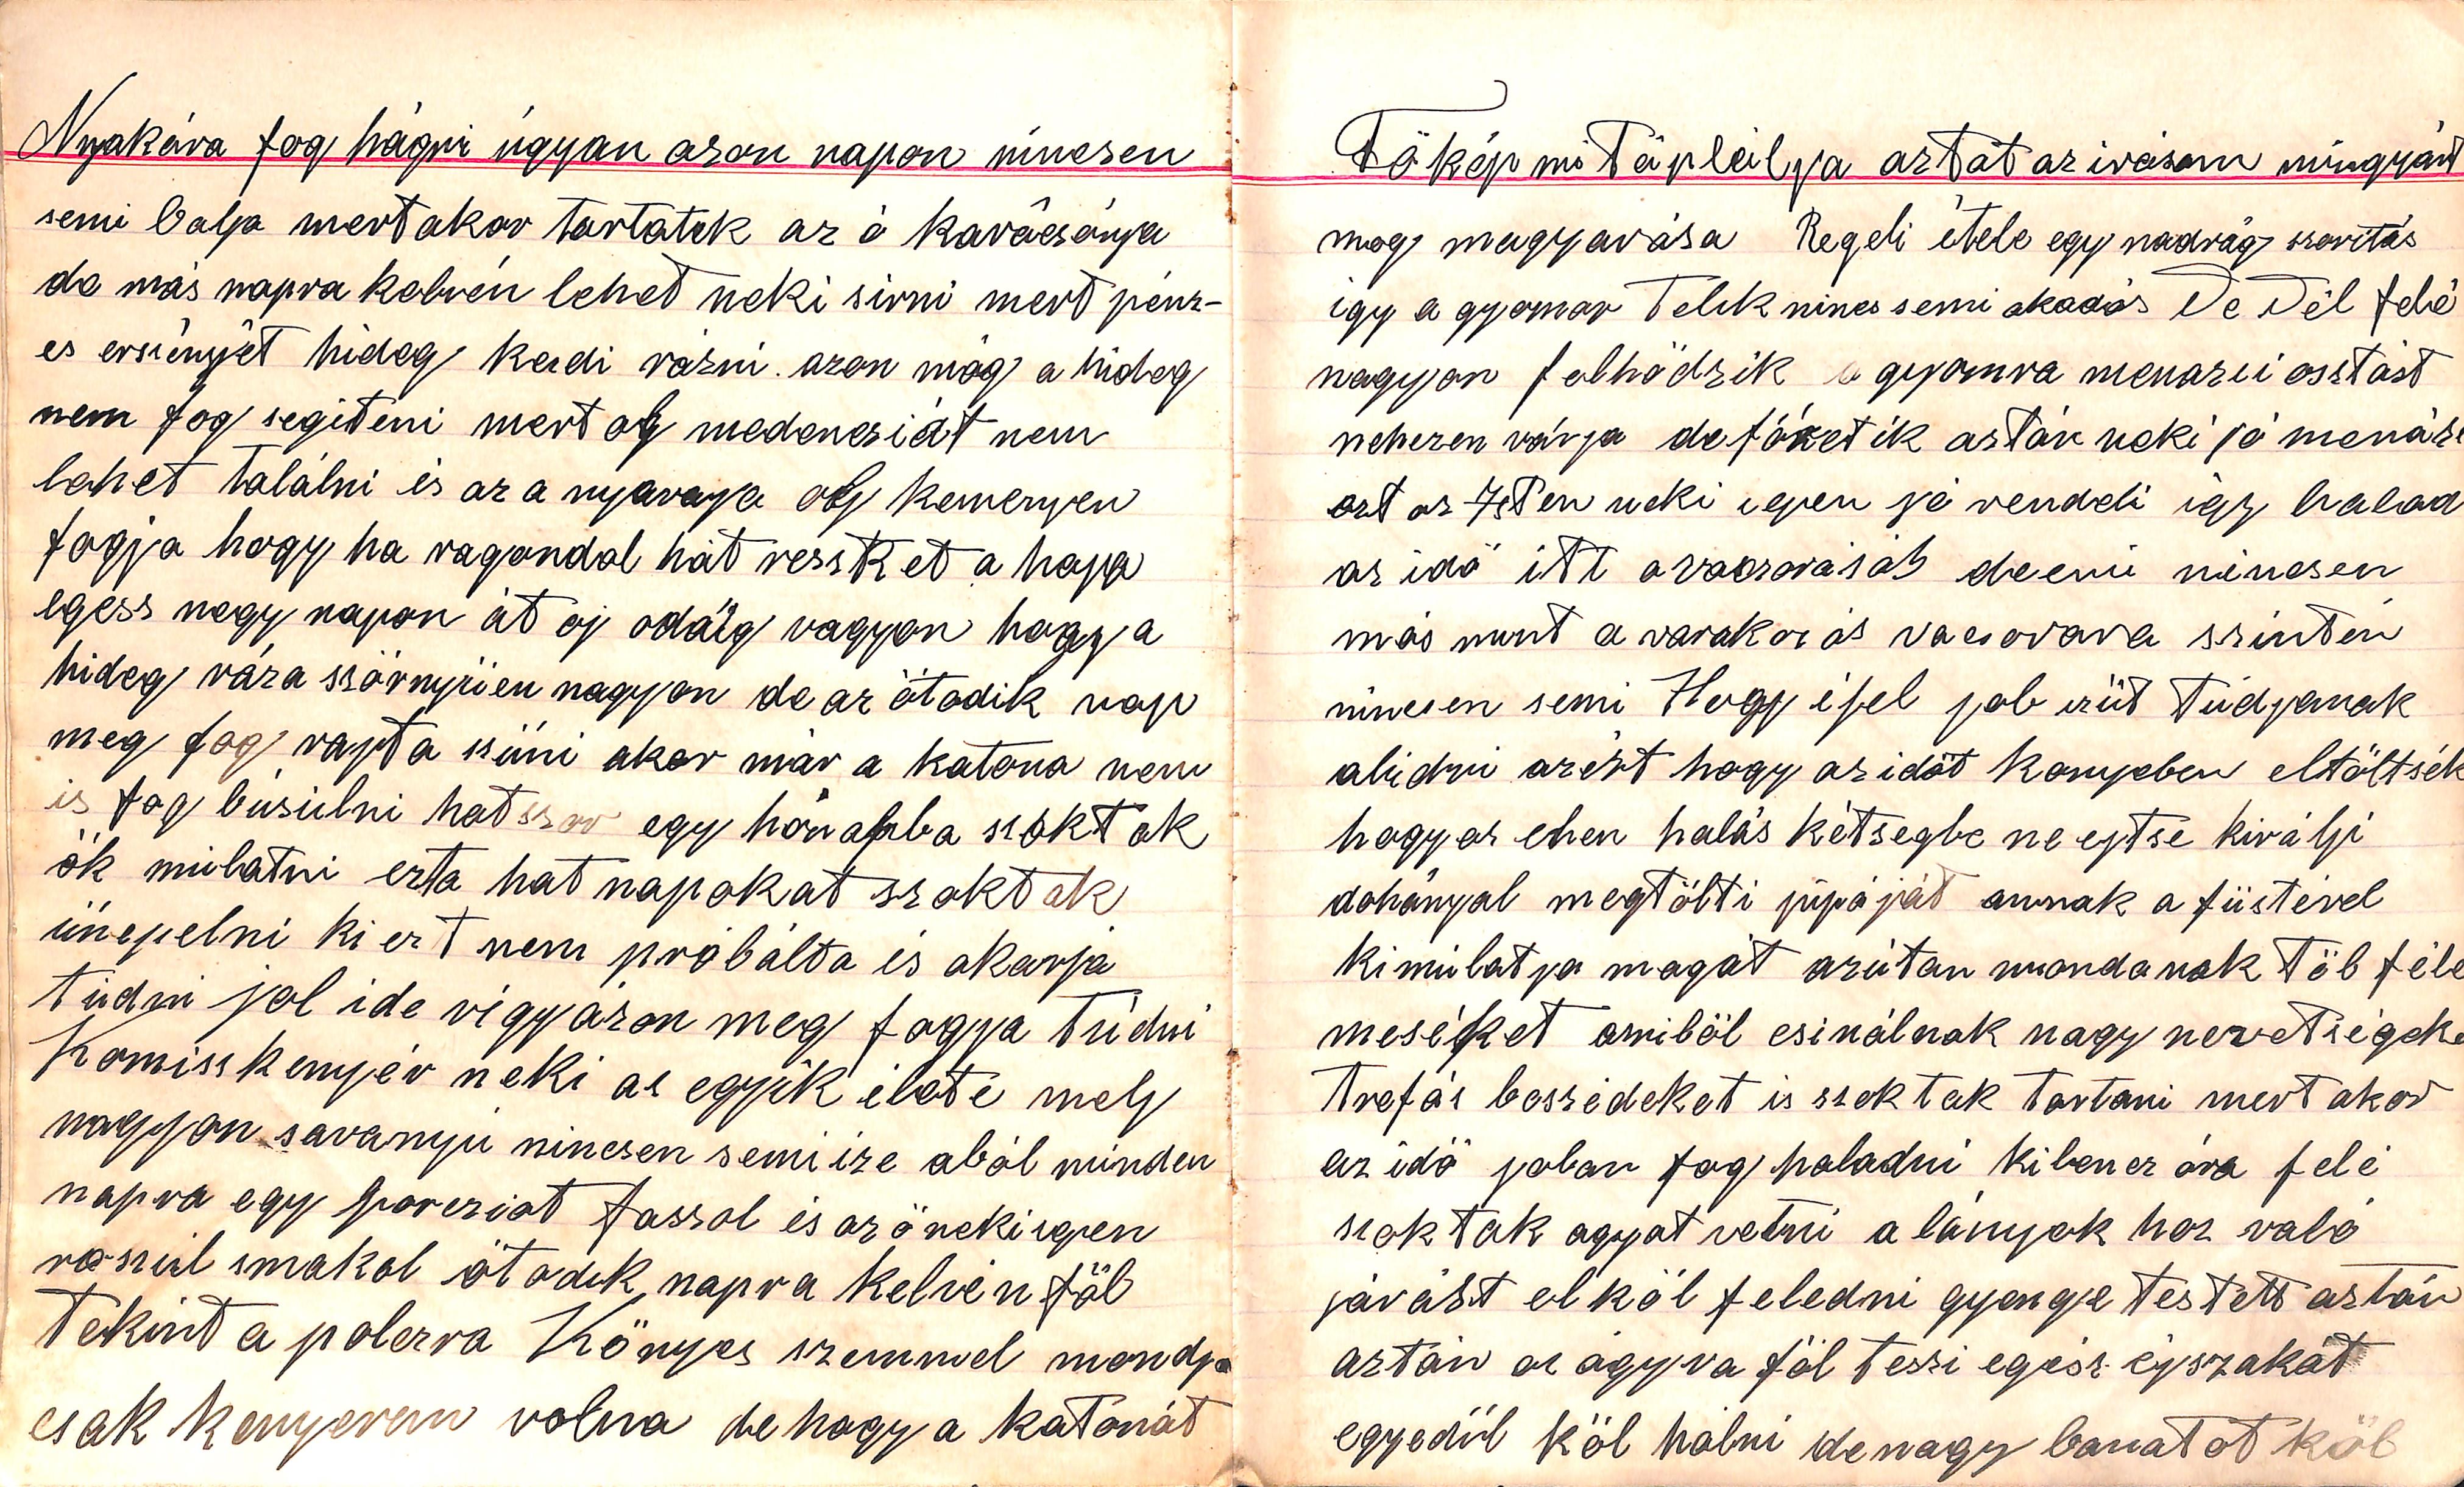 Nyakára fog hágni úgyan azon napon nincsen
semi balja mert akor tartatik az ö karácsónya
de más napra kelvén lehet neki sirni mert pénz-
es erszényét hideg kezdi rázni. azon még a hideg
nem fog segiteni mert oly medenesiát nem
lehet találni és az a nyavaja oly kemenyen
fogja hogy ha ragondol hát resstket a haja
egess negy napon át oj odáig vagyon hogy a
hideg ráza szörnyüen nagyon de az ötödik nap
meg fog rajta szüni akor már a katona nem
is fog búsúlni hatszor egy hónapba szoktak
ök mulatni ezta hat napokat szoktak
ünepelni ki ezt nem próbálta és akarja
tudni jol ide vigyázon meg fogya túdni
Komisskenyér neki az egyik élete mely
nagyon savanyú nincsen semi ize aból minden
napra egy porcziot fassol és az öneki igen
rosszúl smakol ötödik napra kelvén föl
tekint a polczra Könyes szemmel mondja
csak kenyerem volna de hogy a katonát
Föképmi táplálja aztat az irásom mingyárt
meg magyarása Regeli étele egy nadrág szoritás
igy a gyomor telik nincs semi akadás De Dél felé
nagyon felhödzik a gyomra menazsi osstást
nehezen várja de fözetik astán neki jó menázsi
ezt az Isten neki igen jó rendeli igy halad
az idö itt a vacsorásás deenni nincsen
más mint a varakozás vacsorara szintén
nincsen semi Hogy éjel job izüt túdjanak
alúdni azért hogy az idöt konyeben eltöltsék
hogy az ehen halás kétségbe ne ejtse királyi
dohányal megtölti pipáját annak a füstével
kimúlatja magát azútan mondanak töb féle
meséket amiböl csinálnak nagy nevetségeke
trefás beszédeket is szoktak tartani mert akor
az idö joban fog haladni kilencz óra felé
szoktak agyat vetni a lányok hoz való
járást el köl feledni gyenge testett aztán
aztán az ágyra föl teszi egész éjszakát
egyedül köl hálni de nagy banatot köl